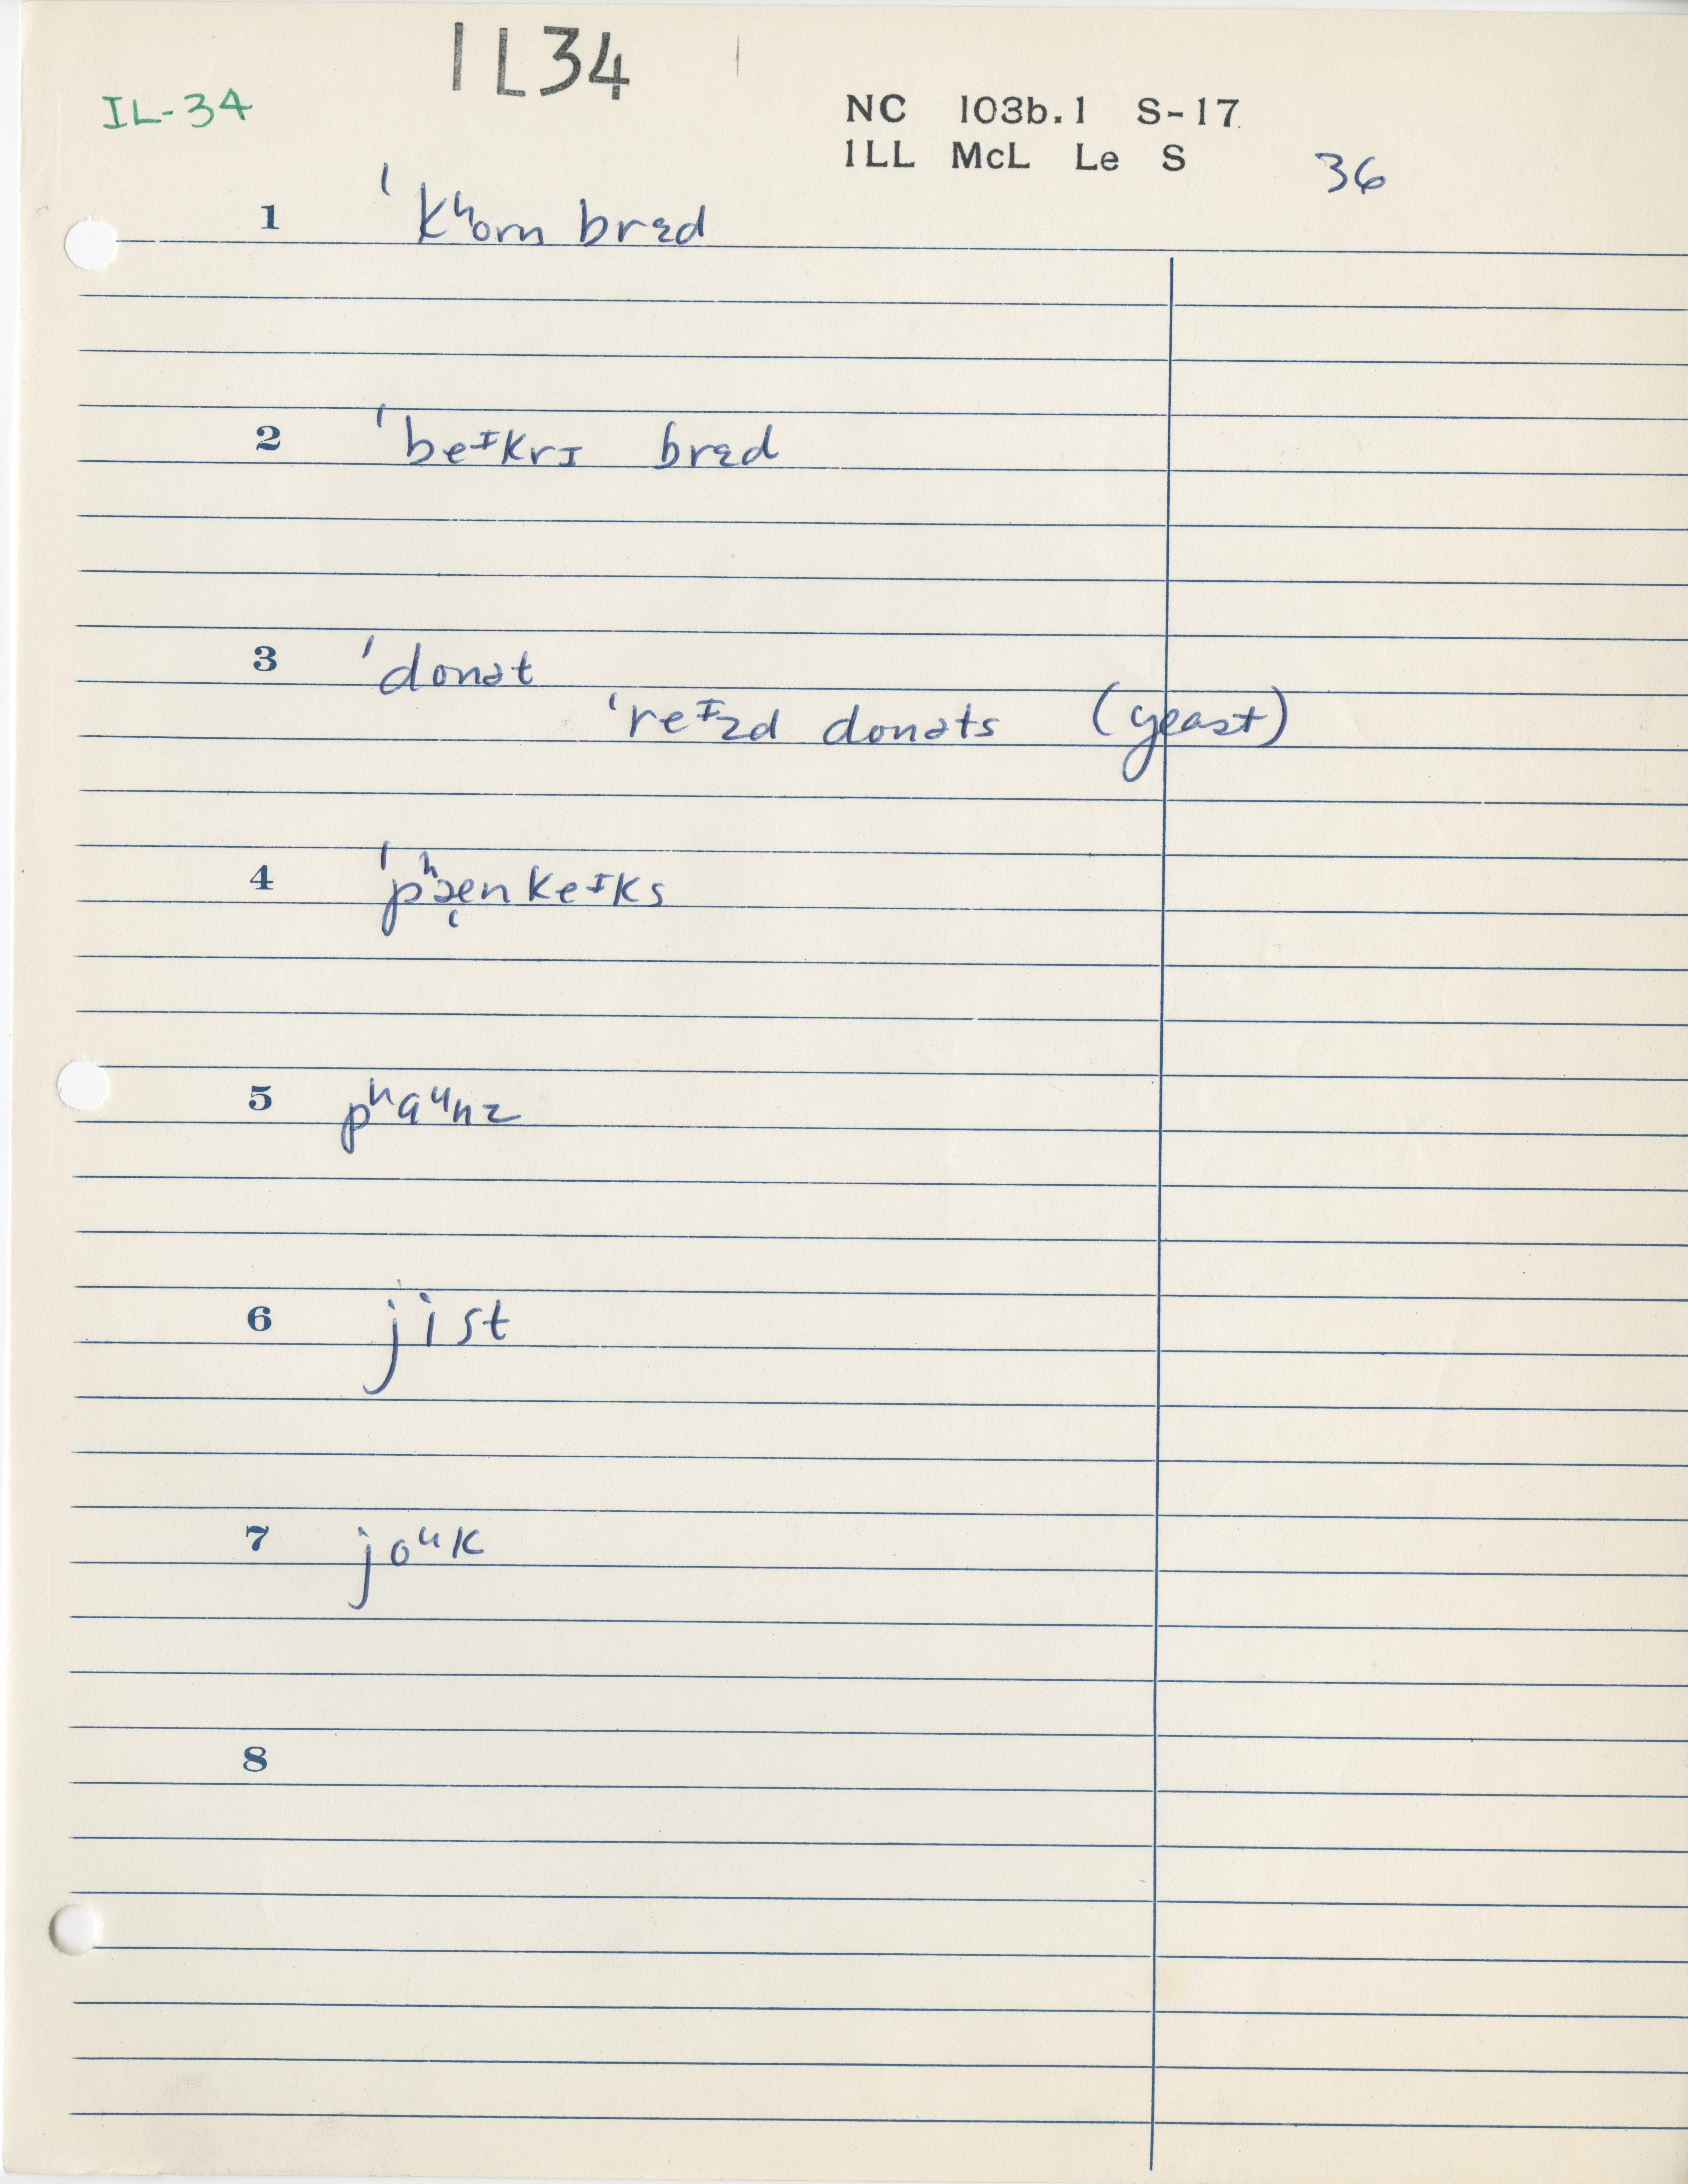 1L34
IL-34
NC 103b.1 S-17
1LL McL Le S
36
1 ˈkʰorn brɛd
2 ˈbeᶦkrɪ brɛd
3 ˈdonət
ˈreᶦzd donəts (yeast)
4 ˈpʰæ̜nkeᶦks
5 pʰaᵘnz
6 jist
7 joᵘk
8